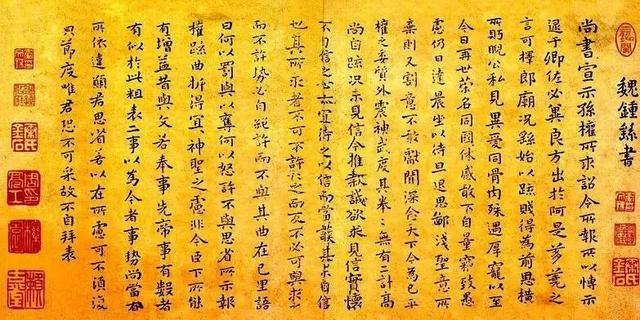 魏鍾繇書
尚書宣示孫權所求詔令所報所以博示
逮于卿佐必冀良方出於阿是芻蕘之
言可擇郎廟況繇始以疏賤得為前恩橫
所盼睨公私見異愛同骨肉殊遇厚寵以至
今日再世榮名同國休慼敢不自量竊致愚
慮仍日達晨坐以待旦退思鄙淺聖意所
棄則又割意不敢獻聞深念天下今為已平
權之委質外震神武度其拳〻無有二計高
尚自疏況未見信今推款誠欲求見信實懷
不自信之心亦宜待之以信而當護其未自信
也其所求者不可不許〻之而反不必可與求之
而不許勢必自絕許而不與其曲在己里語
曰何以罰與以奪何以怒許不與思省所示報
權疏曲折得宜〻神聖之慮非今臣下所能
有增益昔與文若奉事先帝事有數者
有似於此粗表二事以為今者事勢尚當有
所依違願君思省若以在所慮可不須復
只節度唯君恐不可采故不自拜表